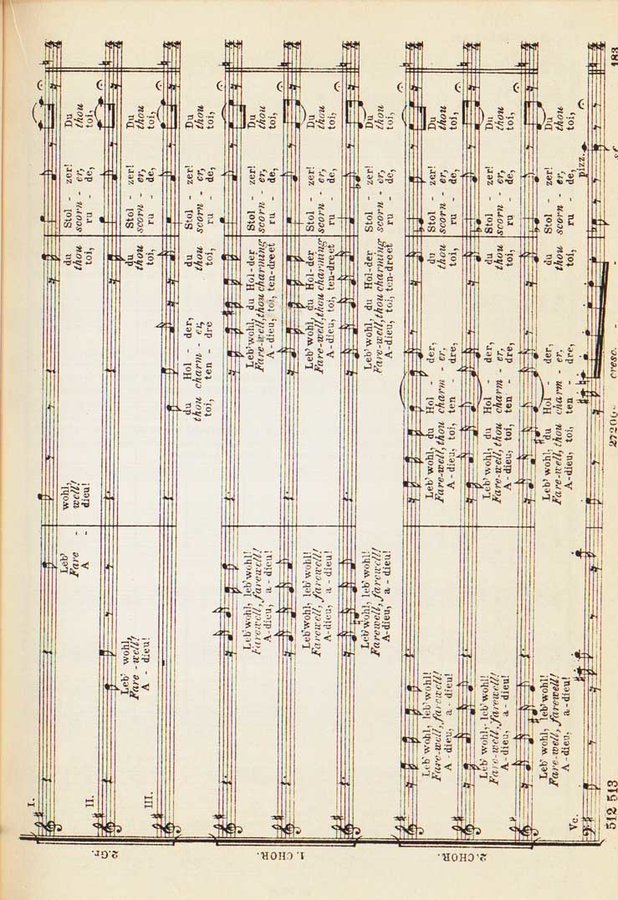 2.Gr.
I.
Leb' wohl, du Stol - zer! Du
Fare - well! thou scorn - er, thou
A - dieu! toi, ru - de, toi,
II.
Leb' wohl, du Stol - zer! Du
Fare - well! thou scorn - er, thou
A - dieu! toi, ru - de, toi,
III.
du Hol - der, du Stol - zer! Du
thou charm - er, thou scorn - er, thou
toi, ten - dre toi, ru - de, toi,
1. CHOR.
Leb' wohl, leb' wohl! Leb' wohl, du Hol-der Stol - zer! Du
Farewell, farewell! Fare-well, thou charming scorn - er, thou
A-dieu, a - dieu! A-dieu, toi, ten-dreet ru - de, toi,
Leb' wohl, leb' wohl! Leb' wohl, du Hol-der Stol - zer! Du
Farewell, farewell! Fare-well, thou charming scorn - er, thou
A-dieu, a - dieu! A-dieu, toi, ten-dreet ru - de, toi,
Leb' wohl, leb' wohl! Leb' wohl, du Hol-der Stol - zer! Du
Farewell, farewell! Fare-well, thou charming scorn - er, thou
A-dieu, a - dieu! A-dieu, toi, ten-dreet ru - de, toi,
2. CHOR.
Leb' wohl, leb' wohl! Leb' wohl, du Hol - der, du Stol - zer! Du
Fare-well, farewell! Fare-well, thou charm - er, thou scorn - er, thou
A - dieu, a - dieu! A - dieu, toi, ten - dre, toi, ru - de, toi,
Leb' wohl, leb' wohl! Leb' wohl, du Hol - der, du Stol - zer! Du
Fare-well, farewell! Fare-well, thou charm - er, thou scorn - er, thou
A - dieu, a - dieu! A - dieu, toi, ten - dre, toi, ru - de, toi,
Leb' wohl, leb' wohl! Leb' wohl, du Hol - der, du Stol - zer! Du
Fare-well, farewell! Fare-well, thou charm - er, thou scorn - er, thou
A - dieu, a - dieu! A - dieu, toi, ten - dre, toi, ru - de, toi,
Vc. pizz.
512 513 27200 cresc. - sf 183